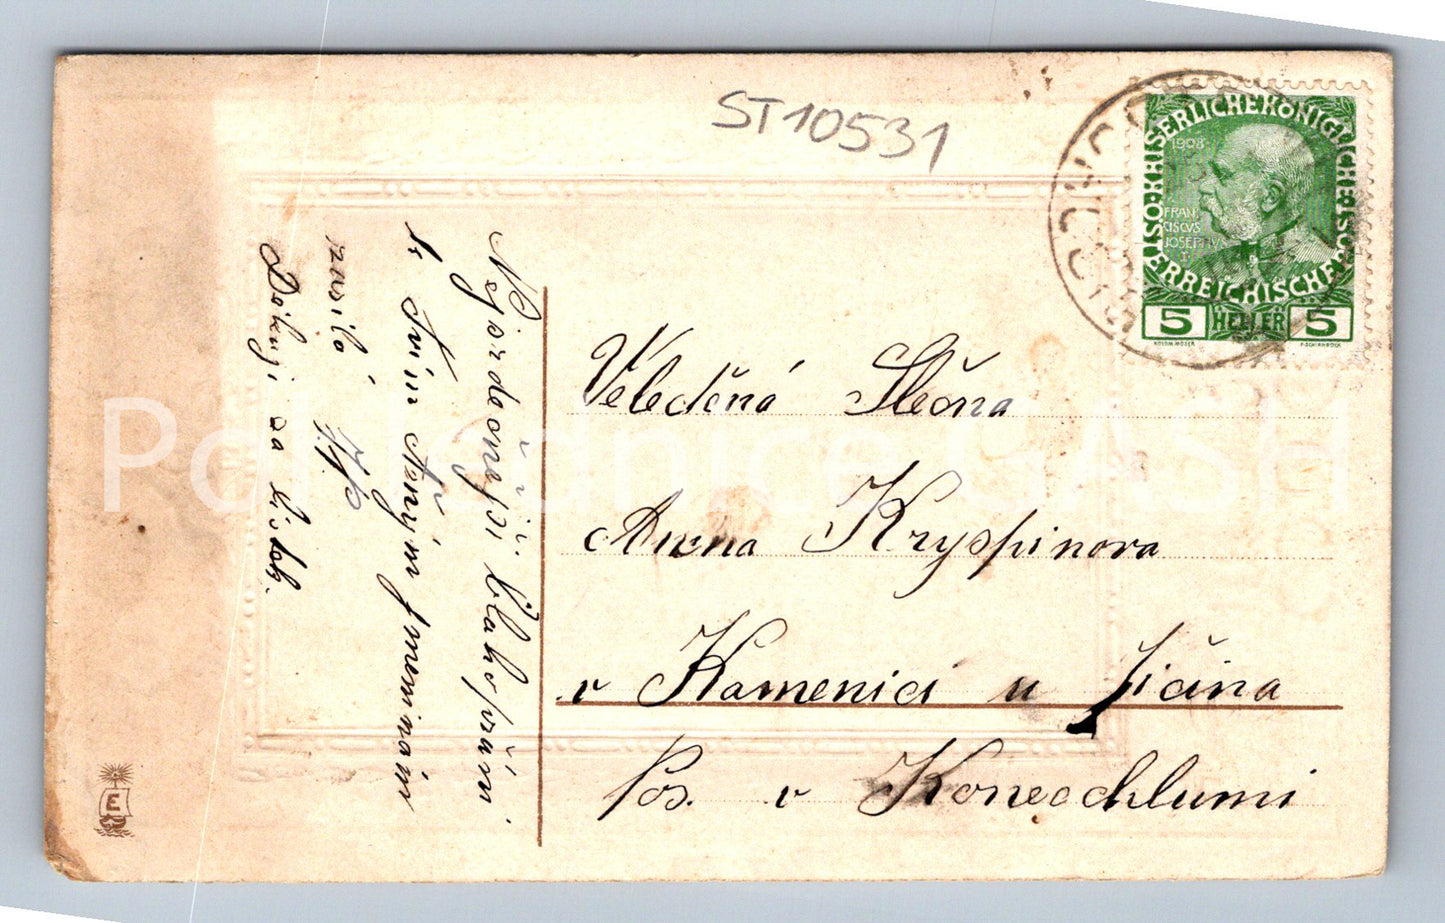 ST10531
KAISERLICHE KÖNIGLICHE ÖSTERREICHISCHE
1908
FRAN
CISCVS
JOSEPHVS
5 HELLER 5
KOLOM. MOSER
F. SCHIRNBÖCK
Nejsrdečnější blahopřání
k Svím
zasílá
Děkuji za lístek.
Veleděná Slečna
Anna Kryspinova
v Kamenici u Jičina
Pos. v Konecchlumi
E
Pohlednice SASH